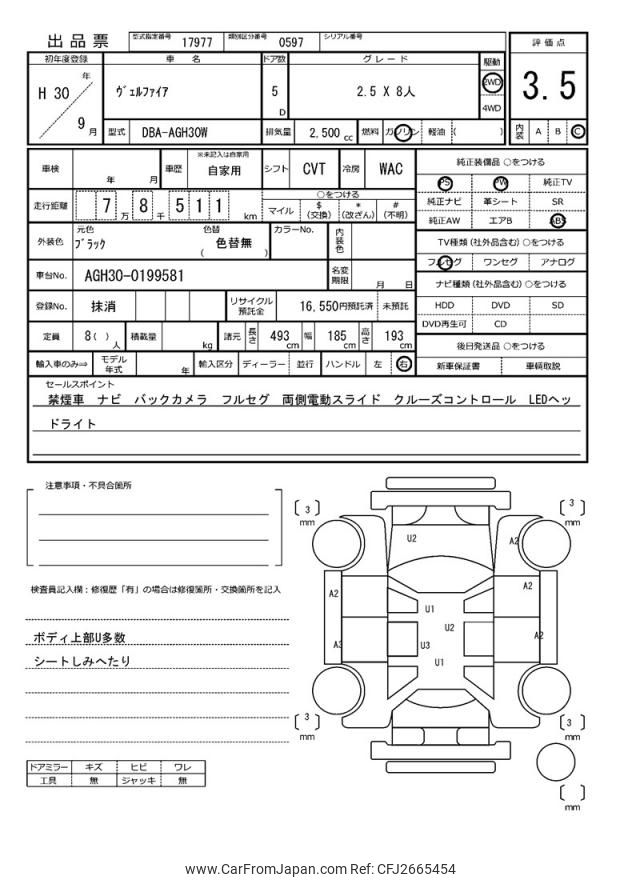 出品票 型式指定番号 17977 類別区分番号 0597 シリアル番号
評価点
初年度登録 車名 ドア数 グレード 駆動
H 30 年 9 月 ヴェルファイア 5 D 2.5 X 8人 2WD 4WD 3.5
型式 DBA-AGH30W 排気量 2,500 cc 燃料 ガソリン 軽油 ( ) 内装 A B C
車検 年 月 車歴 ※未記入は自家用 自家用 シフト CVT 冷房 WAC
走行距離 7 万 8 千 5 1 1 km ○をつける マイル $ (交換) * (改ざん) # (不明)
外装色 元色 ブラック 色替 色替無 ( ) カラーNo. 内装色
車台No. AGH30-0199581 名変期限 月 日
登録No. 抹消 リサイクル預託金 16,550円預託済 未預託
定員 8( ) 人 積載量 kg 諸元 長さ 493 cm 幅 185 cm 高さ 193 cm
輸入車のみ⇒ モデル年式 年 輸入区分 ディーラー 並行 ハンドル 左 右
純正装備品 ○をつける
PS PW 純正TV
純正ナビ 革シート SR
純正AW エアB ABS
TV種類 (社外品含む) ○をつける
フルセグ ワンセグ アナログ
ナビ種類 (社外品含む) ○をつける
HDD DVD SD
DVD再生可 CD
後日発送品 ○をつける
新車保証書 車輌取説
セールスポイント
禁煙車 ナビ バックカメラ フルセグ 両側電動スライド クルーズコントロール LEDヘッ
ドライト
注意事項・不具合箇所
検査員記入欄：修復歴「有」の場合は修復箇所・交換箇所を記入
ボディ上部U多数
シートしみへたり
ドアミラー キズ ヒビ ワレ
工具 無 ジャッキ 無
3 mm
3 mm
U2
A2
A2
A2
U1
U2
A2
A3
U3
U1
3 mm
3 mm
mm
www.CarFromJapan.com Ref: CFJ2665454